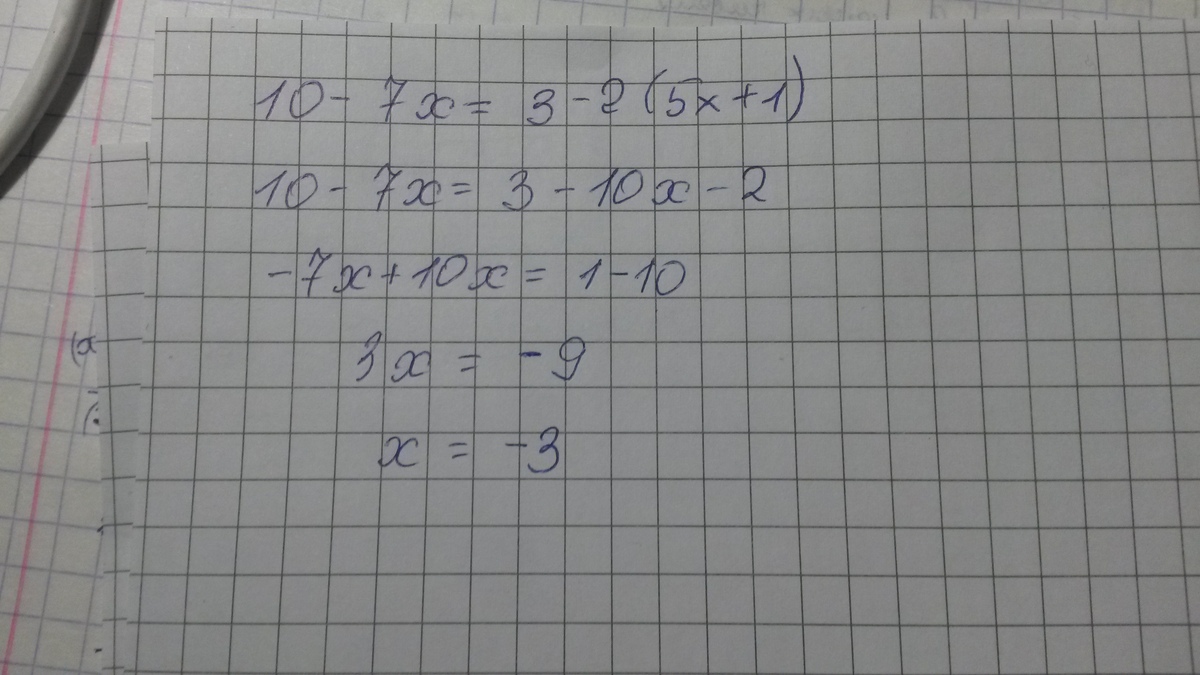 10 - 7x = 3 - 2 (5x + 1)
10 - 7x = 3 - 10x - 2
-7x + 10x = 1 - 10
3x = -9
x = -3